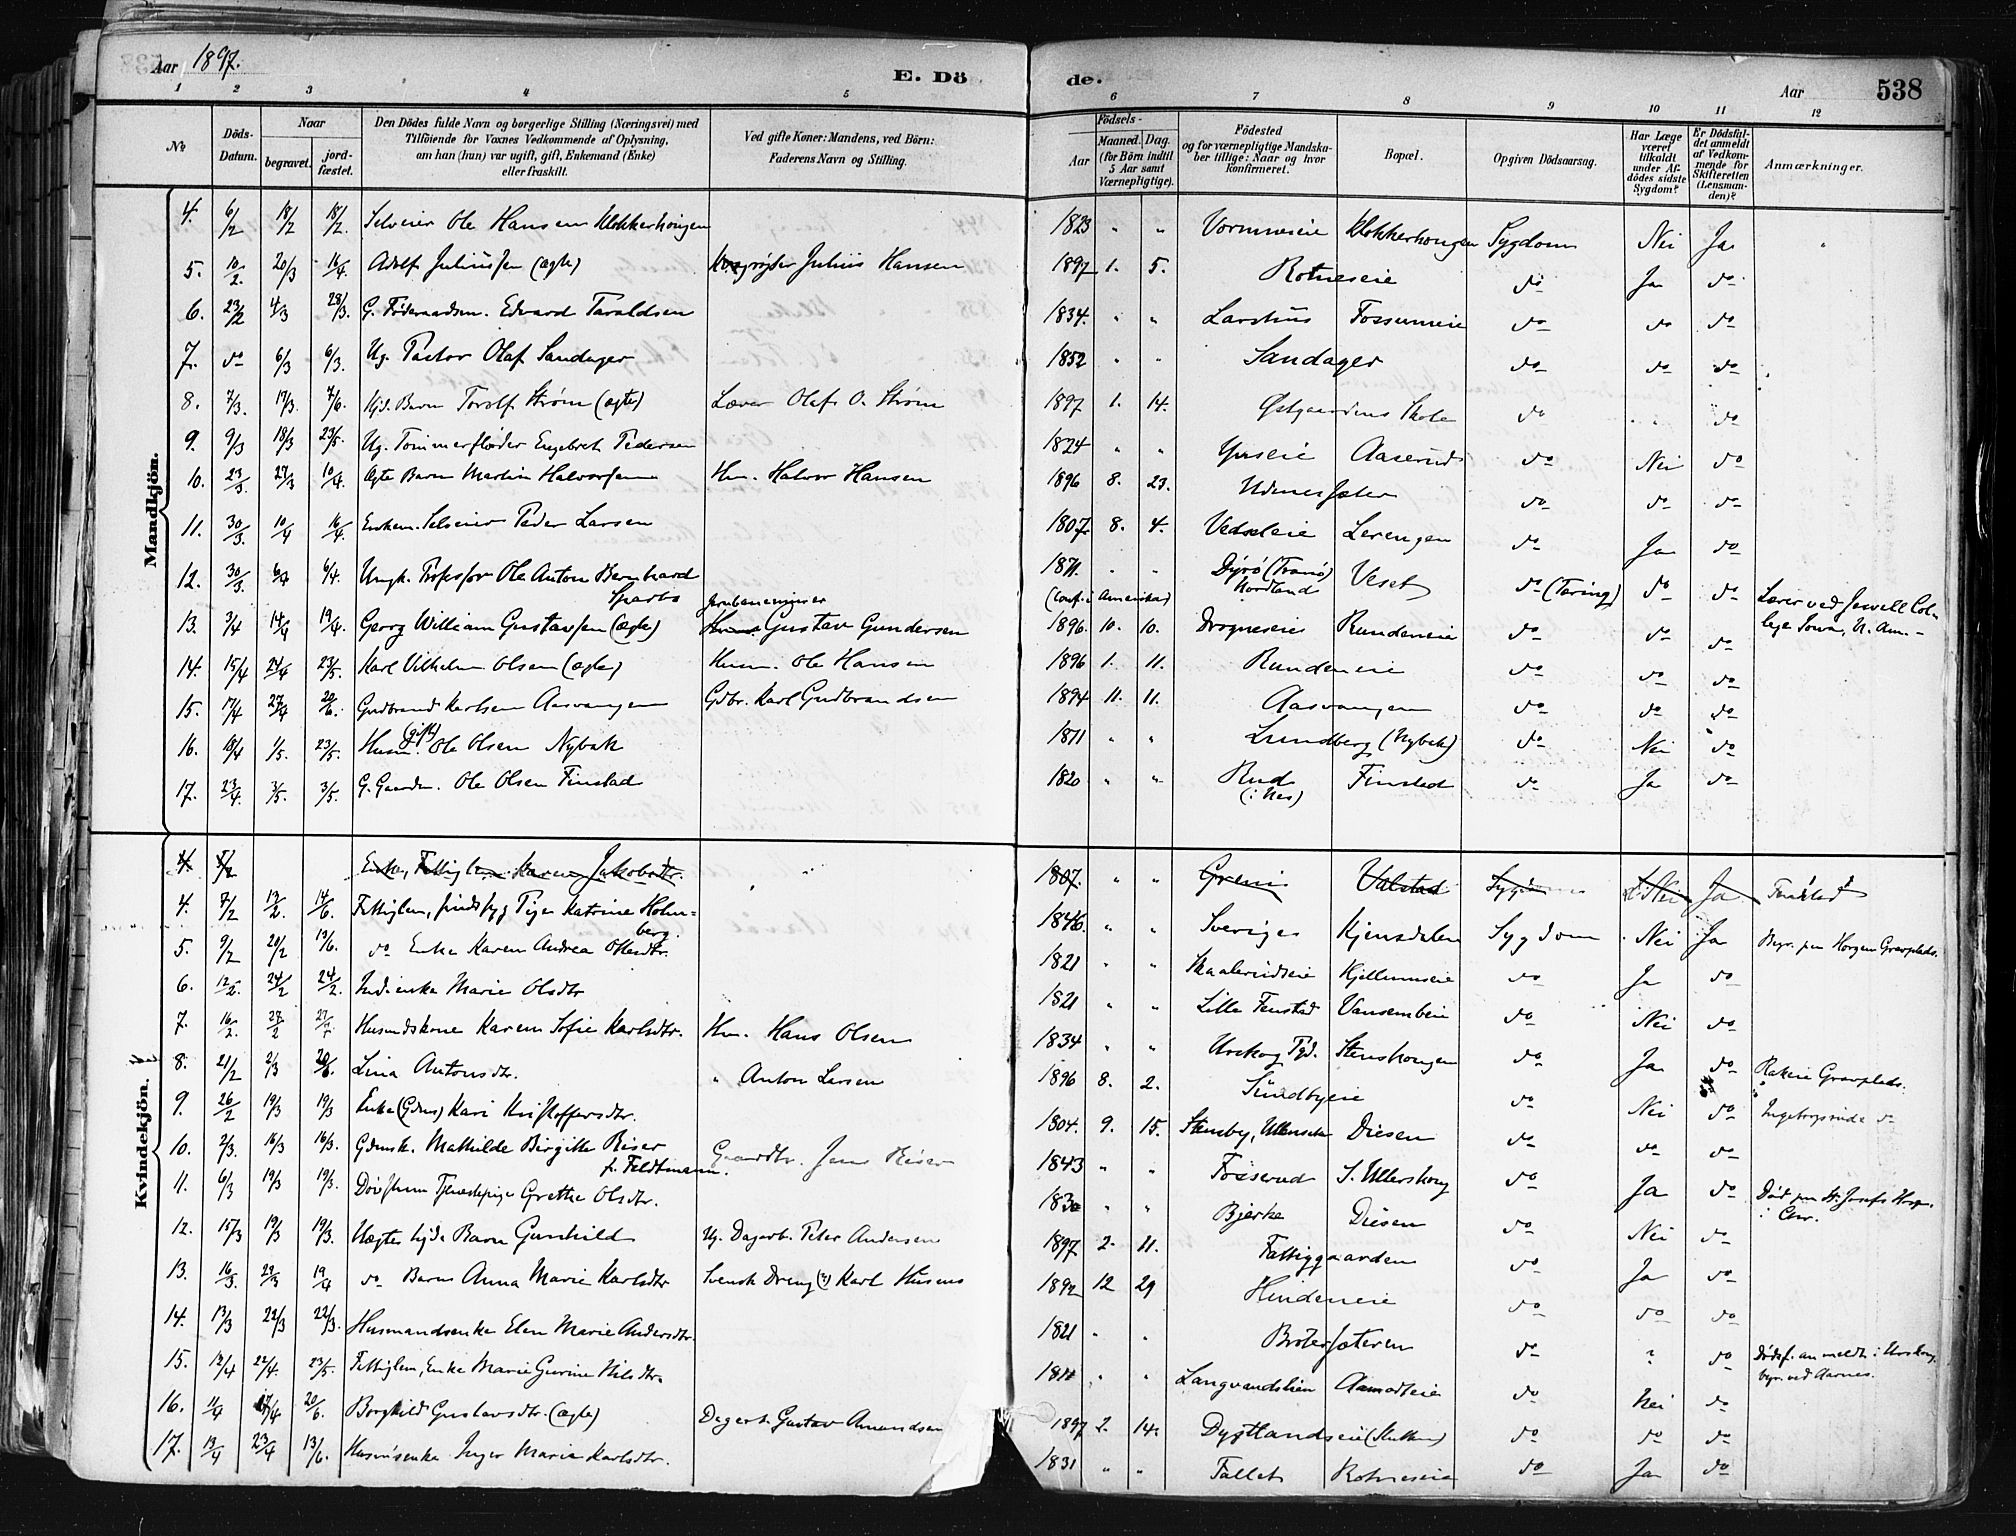 Aar 1897. E. Dö de. Aar 538
1 2 3 4 5 6 7 8 9 10 11 12
№ Döds-Datum. Naar begravet. jord-fæstet. Den Dödes fulde Navn og borgerlige Stilling (Næringsvei) med Tilföiende for Voxnes Vedkommende af Oplysning, om han (hun) var ugift, gift, Enkemand (Enke) eller fraskilt. Ved gifte Koner: Mandens, ved Börn: Faderens Navn og Stilling. Födsels- Aar Maaned. Dag. (for Börn indtil 5 Aar samt Værnepligtige). Födested og for værnepligtige Mandskaber tillige: Naar og hvor konfirmeret. Bopæl. Opgiven Dödsaarsag. Har Læge været tilkaldt under Afdödes sidste Sygdom? Er Dödsfaldet anmeldt af Vedkommende for Skifteretten (Lensmanden)? Anmærkninger.
Mandkjön.
4. 6/2 18/2 18/2. Selveier Ole Hansen Klokkerhougen 1823 " " Vormneseie Klokkerhougen Sygdom Nei Ja "
5. 10/2. 20/3 16/4. Adolf Juliussen (ægte) Julius Hansen 1897 1. 5. Rotneseie do Ja do
6. 23/2 4/3 28/3. G. Föderaadsm. Edvard Taraldsen 1834. " " Larshus Fossumeie do do do
7. do 6/3 6/3. Ug. Pastor Olaf Sandager 1852 " " Sandager do do do
8. 7/3. 19/3. 7/6. Barn Torolf Strøm (ægte) Lærer Olaf O. Strøm 1897 1. 14. Østgaardens Skole do " do
9. 9/3 18/3 23/5. Ug. Tømmerfløder Engebret Pedersen 1824 " " Aaserud do Nei do
10. 23/3. 27/3 10/4. Ægte Barn Martin Halvorsen Hm. Halvor Hansen 1896 8. 23. Udenessæter do do do
11. 30/3. 10/4 16/4. Enkem. Selveier Peder Larsen 1807. 8. 4. Lerengen do Ja do
12. 30/3. 6/4 6/4. Ungk. Professor Ole Anton Bernhard Sparbo 1871. " " Dyrø (Tranø) Nordland (Conf. i Amerika) Veset do (Tæring) do do Lærer ved Jewell College Iowa, N. Am.
13. 3/4 14/4 19/4. Georg William Gustavsen (ægte) Gustav Gundersen 1896. 10. 10. Drogneseie Rundeneie do do do
14. 15/4 24/4 23/5. Karl Vilhelm Olsen (ægte) Husm. Ole Hansen 1896 1. 11. Rundeneie do do do
15. 17/4 27/4 20/6. Gudbrand Karlsen Aasvangen Gdbr. Karl Gudbrandsen 1894 11. 11. Aasvangen do do do
16. 18/4 1/5. 23/5. Husm. (gift) Ole Olsen Nybak 1811 " " Lundberg (Nybak) do Nei do
17. 23/4. 3/5. 3/5. G. Gaardm. Ole Olsen Finstad 1820 " " Rud (i Nes) Finstad do Ja do
Kvindekjön.
4 5/2 Enke, Fattiglem Karen Jakobsdtr. 1807. " " Greni Valstad Sygdom Nei Ja
4. 7/2 19/2. 14/6. Fattiglem, sindssyg Pige Katrine Holmberg. 1846. " " Sverige Kjensdalen Sygdom Nei Ja Begr. paa Horgen Gravplads.
5. 9/2 20/2 13/6. do Enke Karen Andrea Olsdtr. 1821 " " Skaalerudseie Kjellumseie do Ja do
6. 12/2. 24/2 24/2. Inderenke Marie Olsdtr 1821 " " Lille Fenstad Vansembeie do Nei do
7. 16/2. 27/2 27/2. Husmandskone Karen Sofie Karlsdtr. Hm. Hans Olsen 1834 " " Urskog Pgd. Stenshougen do Ja do
8. 21/2 2/3 20/6. Lina Antonsdtr. " Anton Larsen 1896 8. 2. Sundbyeie do Nei do Rakeie Gravplads.
9. 26/2 19/3 19/3 Enke Kari Kristoffersdtr. 1804. 9. 15. Stensby, Diesen do do do Ingeborgsruds do
10. 2/3. 16/3 16/3. Gdmsk. Mathilde Birgitte Riser f. Feldtmann. Gaardbr. Jens Riser 1843 " " Fosserud S. Ullershoug do Ja do Död paa St. Josefs Hosp. i Chr.
11. 6/3 19/3 19/3. Døvstum Tjenestepige Grethe Olsdtr. 1830 " " Bjerke Diesen do Nei do
12. 15/3 19/3 19/3. Uægte Barn Gunhild Ug. Dagarb. Peter Andersen 1897 2. 11. Fattiggaarden do Ja do
13. 16/3. 29/3 19/4 do Barn Anna Marie Karlsdtr Svensk Dreng (?) Karl 1892 12 29 Hindeneie do do do
14. 17/3 22/3 22/3. Husmandsenke Elen Marie Andersdtr. 1821 " " Brotersæteren do ? do Dødsf. anmeldt i Urskoug, begr. ved Aarnes.
15. 12/4 22/4. 23/5. Fattiglem, Enke Marie Gurine Nilsdtr. " " Langvandslien Aamodteie do Nei do
16. 11/4 17/4 20/6. Borghild Gustavsdtr. (ægte) Dagarb. Gustav Amundsen 1897 2. 14. Dystlandseie do do do
17. 13/4 23/4 13/6. Husm.enke Inger Marie Karlsdtr. 1831 " " Fallet Rotneseie do Ja do